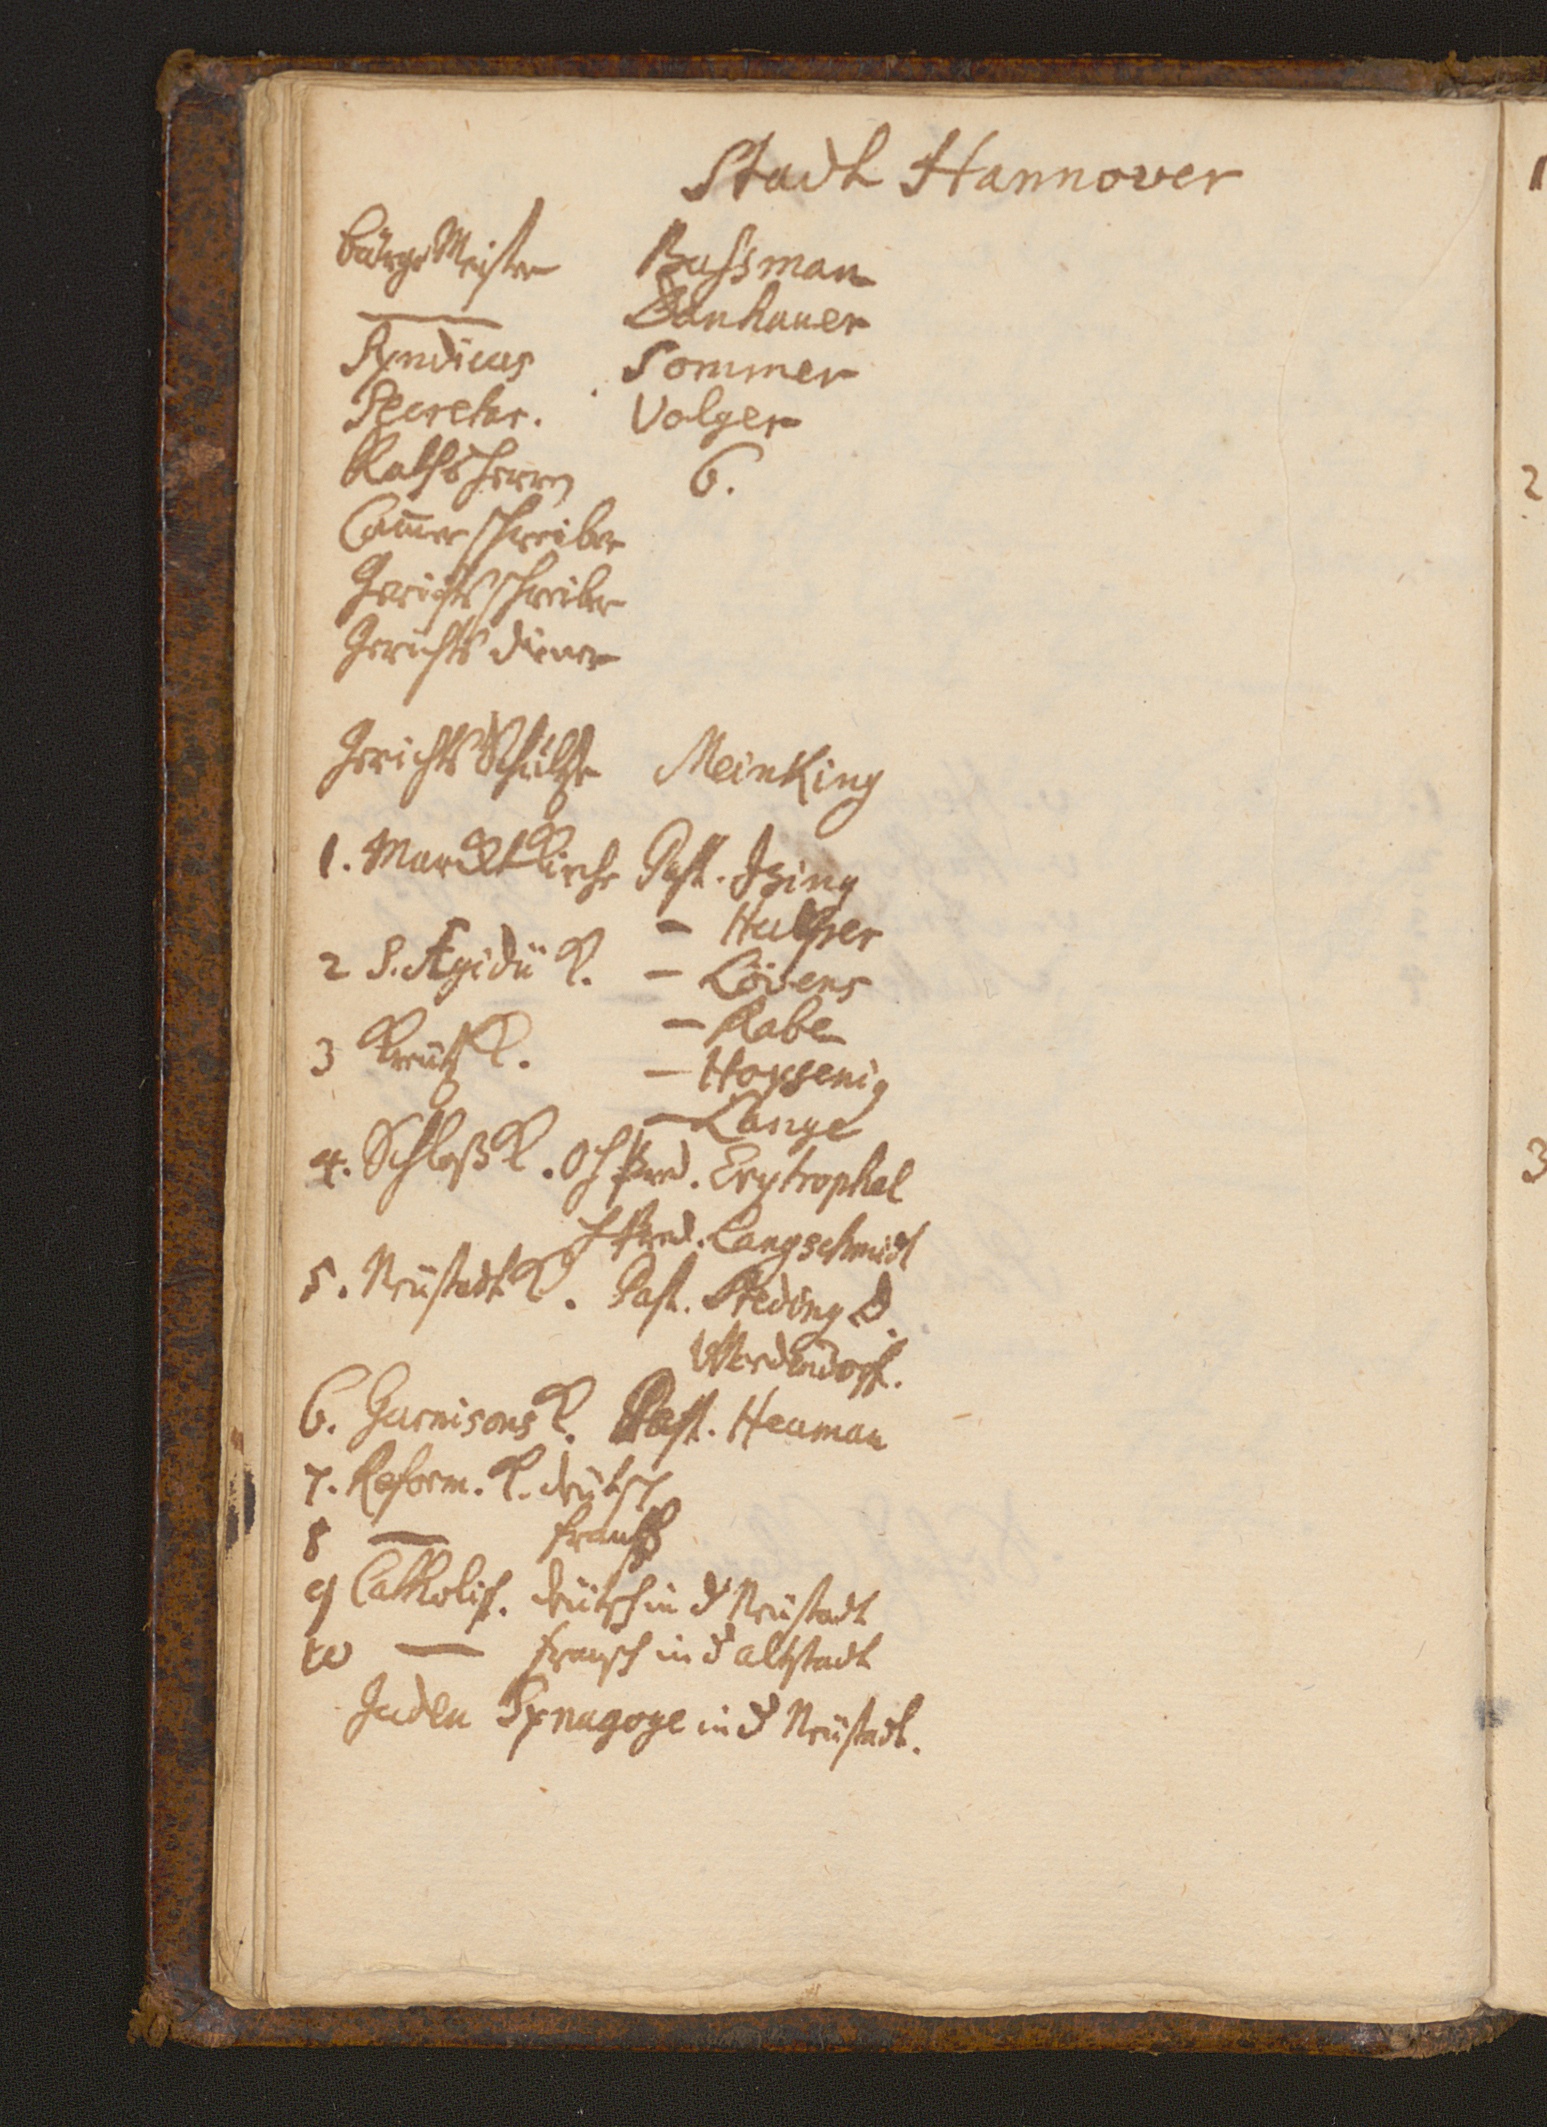 Stadt Hannover
BürgerMeister Bussman
— Danhauer
Syndicus Sommer
Secretar. Volger
Rathsherrn 6.
Cam̅erschreiber
Gerichtsschreiber
Gerichts diener
Gerichts Schultze Meinking
1. MarcktKirche Past. Ising
–
2 S. Ægidii K. – Lövens
– Rabe
3 Kreutz K. –
– Lange
4. Schloß K. OHpred. Erytrophel
Hpred. Langschmidt
5. Neüstadt K. Past. Steding D.
6. Garnisons K. Past. Heuman
7. Reform. K. deütsch
8 —
9 Catholis. deütsch in d Neüstadt
10 — fransch in d altstadt
Juden Synagoge in d Neüstadt.
1
2
3